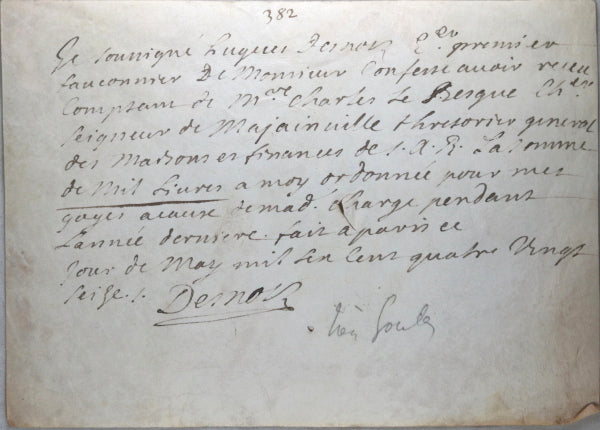 382
Je soussigné hugues Desnots Er. premier
fauconnier De Monsieur Confesse avoir receu
Comptant de Mre Charles Le Besque Cher
Seigneur de Majainville thresorier general
des Maisons et finances de s. A. R. La somme
de Mil Livres a moy ordonnée pour mes
gages acause de mad. charge pendant
L'année derniere. fait a paris ce
jour de May mil six Cent quatre Vingt
seize.
Desnots